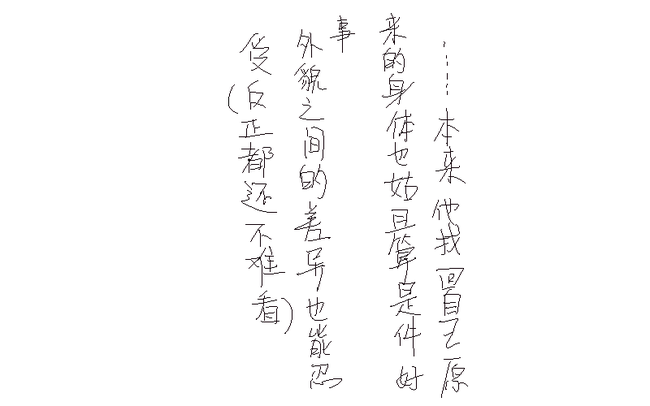 ……本来他找回自己原
来的身体也姑且算是件好
事
外貌之间的差异也能忍
受(反正都还不难看)